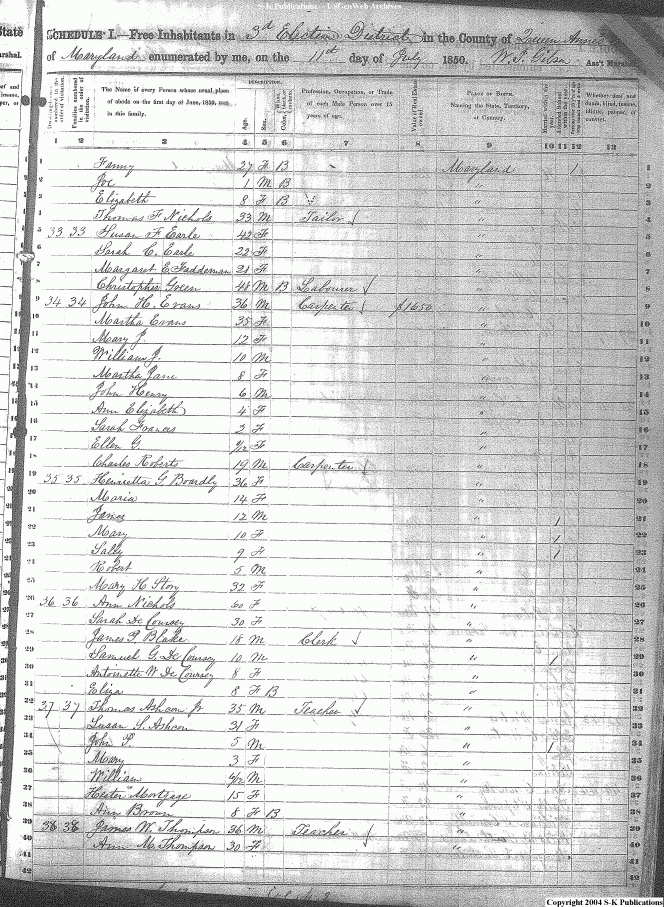 S-K Publications - UsGenWeb Archives
State
SCHEDULE I.—Free Inhabitants in 3d Election District in the County of Queen Anne's
of Maryland enumerated by me, on the 11th day of July 1850. W. T. Ass't Marshal
DESCRIPTION.
The Name of every Person whose usual place of abode on the first day of June, 1850, was in this family.
Age.
Sex.
Profession, Occupation, or Trade of each Male Person over 15 years of age.
Value of Real Estate owned
PLACE OF BIRTH. Naming the State, Territory, or Country.
Whether deaf and dumb, blind, insane, idiotic, pauper, or convict.
1 2 3 4 5 6 7 8 9 10 11 12 13
Fanny 27 F B Maryland / 1
Joe 1 M B " 2
Elizabeth 8 F B " 3
Thomas F Nichols 33 M Tailor " 4
33 33 Susan F Earle 42 F " 5
Sarah C. Earle 22 F " 6
Margaret E Faddeman 21 F " 7
Christopher Green 48 M B Labourer " 8
34 34 John H. Evans 36 M Carpenter $1650 " 9
Martha Evans 35 F " 10
Mary J. 12 F " 11
William J. 10 M " 12
Martha Jane 8 F " 13
John Henry 6 M " 14
Ann Elizabeth 4 F " 15
Sarah Frances 2 F " 16
Ellen G. 9/12 F " 17
Charles Roberts 19 M Carpenter " 18
35 35 Henrietta G. Boardly 36 F " 19
Maria 14 F " 20
James 12 M " / 21
Mary 10 F " / 22
Sally 9 F " / 23
Robert 5 M " 24
Mary H Story 32 F " 25
36 36 Ann Nichols 60 F " 26
Sarah De Coursey 30 F " 27
James P. Blake 18 M Clerk " 28
Samuel G. De Coursey 10 M " / 29
Antoinette W De Coursey 8 F " 30
Eliza 8 F B " 31
37 37 Thomas Ashcom Jr 35 M Teacher " 32
Susan S. Ashcom 31 F " 33
John P. 5 M " / 34
Mary 3 F " 35
William 6/12 M " 36
Hester Mortgage 15 F " 37
Ann Brown 8 F B " 38
38 38 James W. Thompson 36 M Teacher " 39
Ann M. Thompson 30 F " 40
41
42
Copyright 2004 S-K Publications